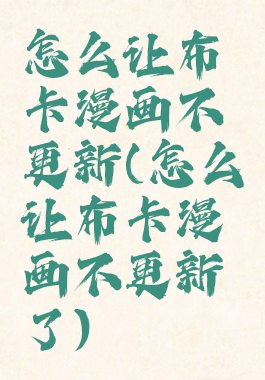 怎么让布
卡漫画不
更新(怎么
让布卡漫
画不更新
了)